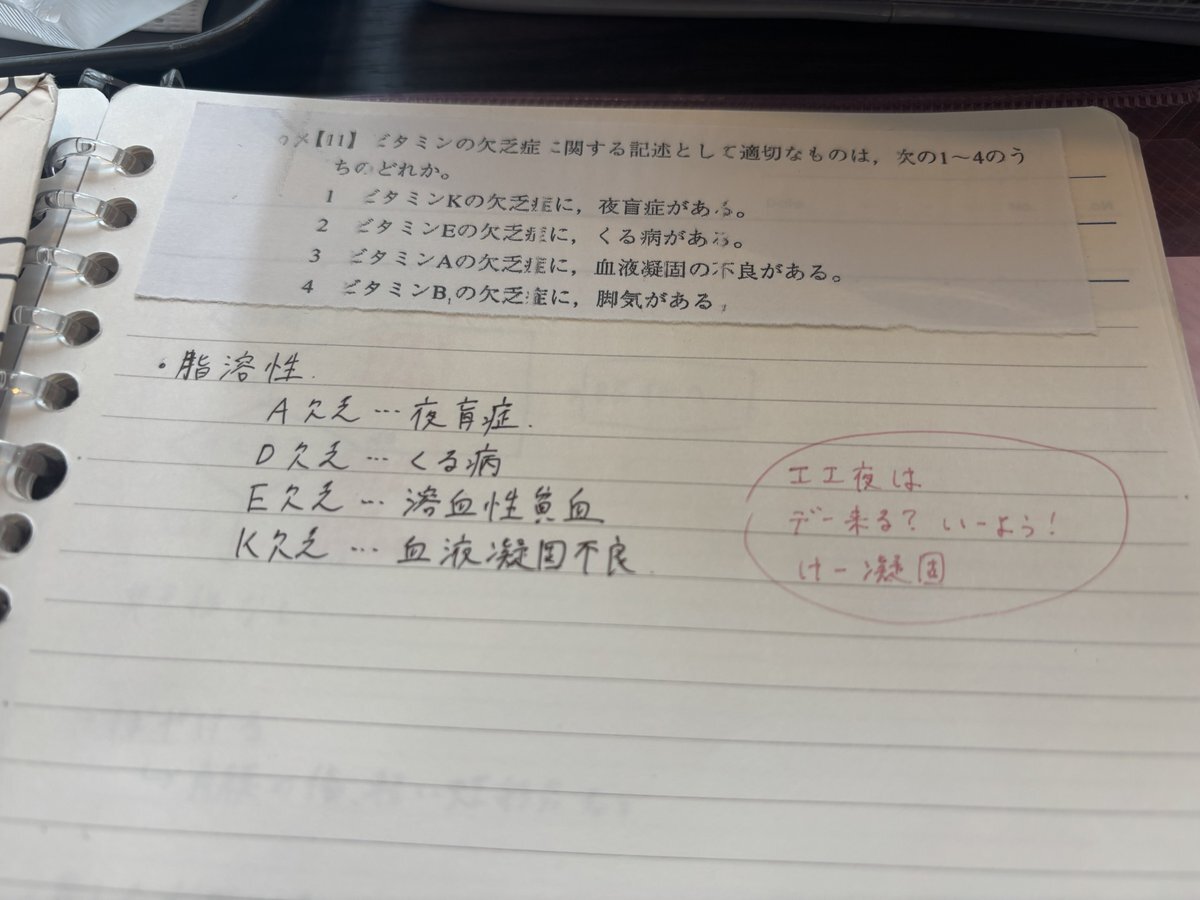 【11】 ビタミンの欠乏症に関する記述として適切なものは，次の1～4のう
ちのどれか。
1 ビタミンKの欠乏症に，夜盲症がある。
2 ビタミンEの欠乏症に，くる病がある。
3 ビタミンAの欠乏症に，血液凝固の不良がある。
4 ビタミンB₁の欠乏症に，脚気がある
・脂溶性.
A欠乏…夜盲症.
D欠乏…くる病
E欠乏…溶血性貧血
K欠乏…血液凝固不良
エエ夜は
デー来る? いーよう!
けー凝固